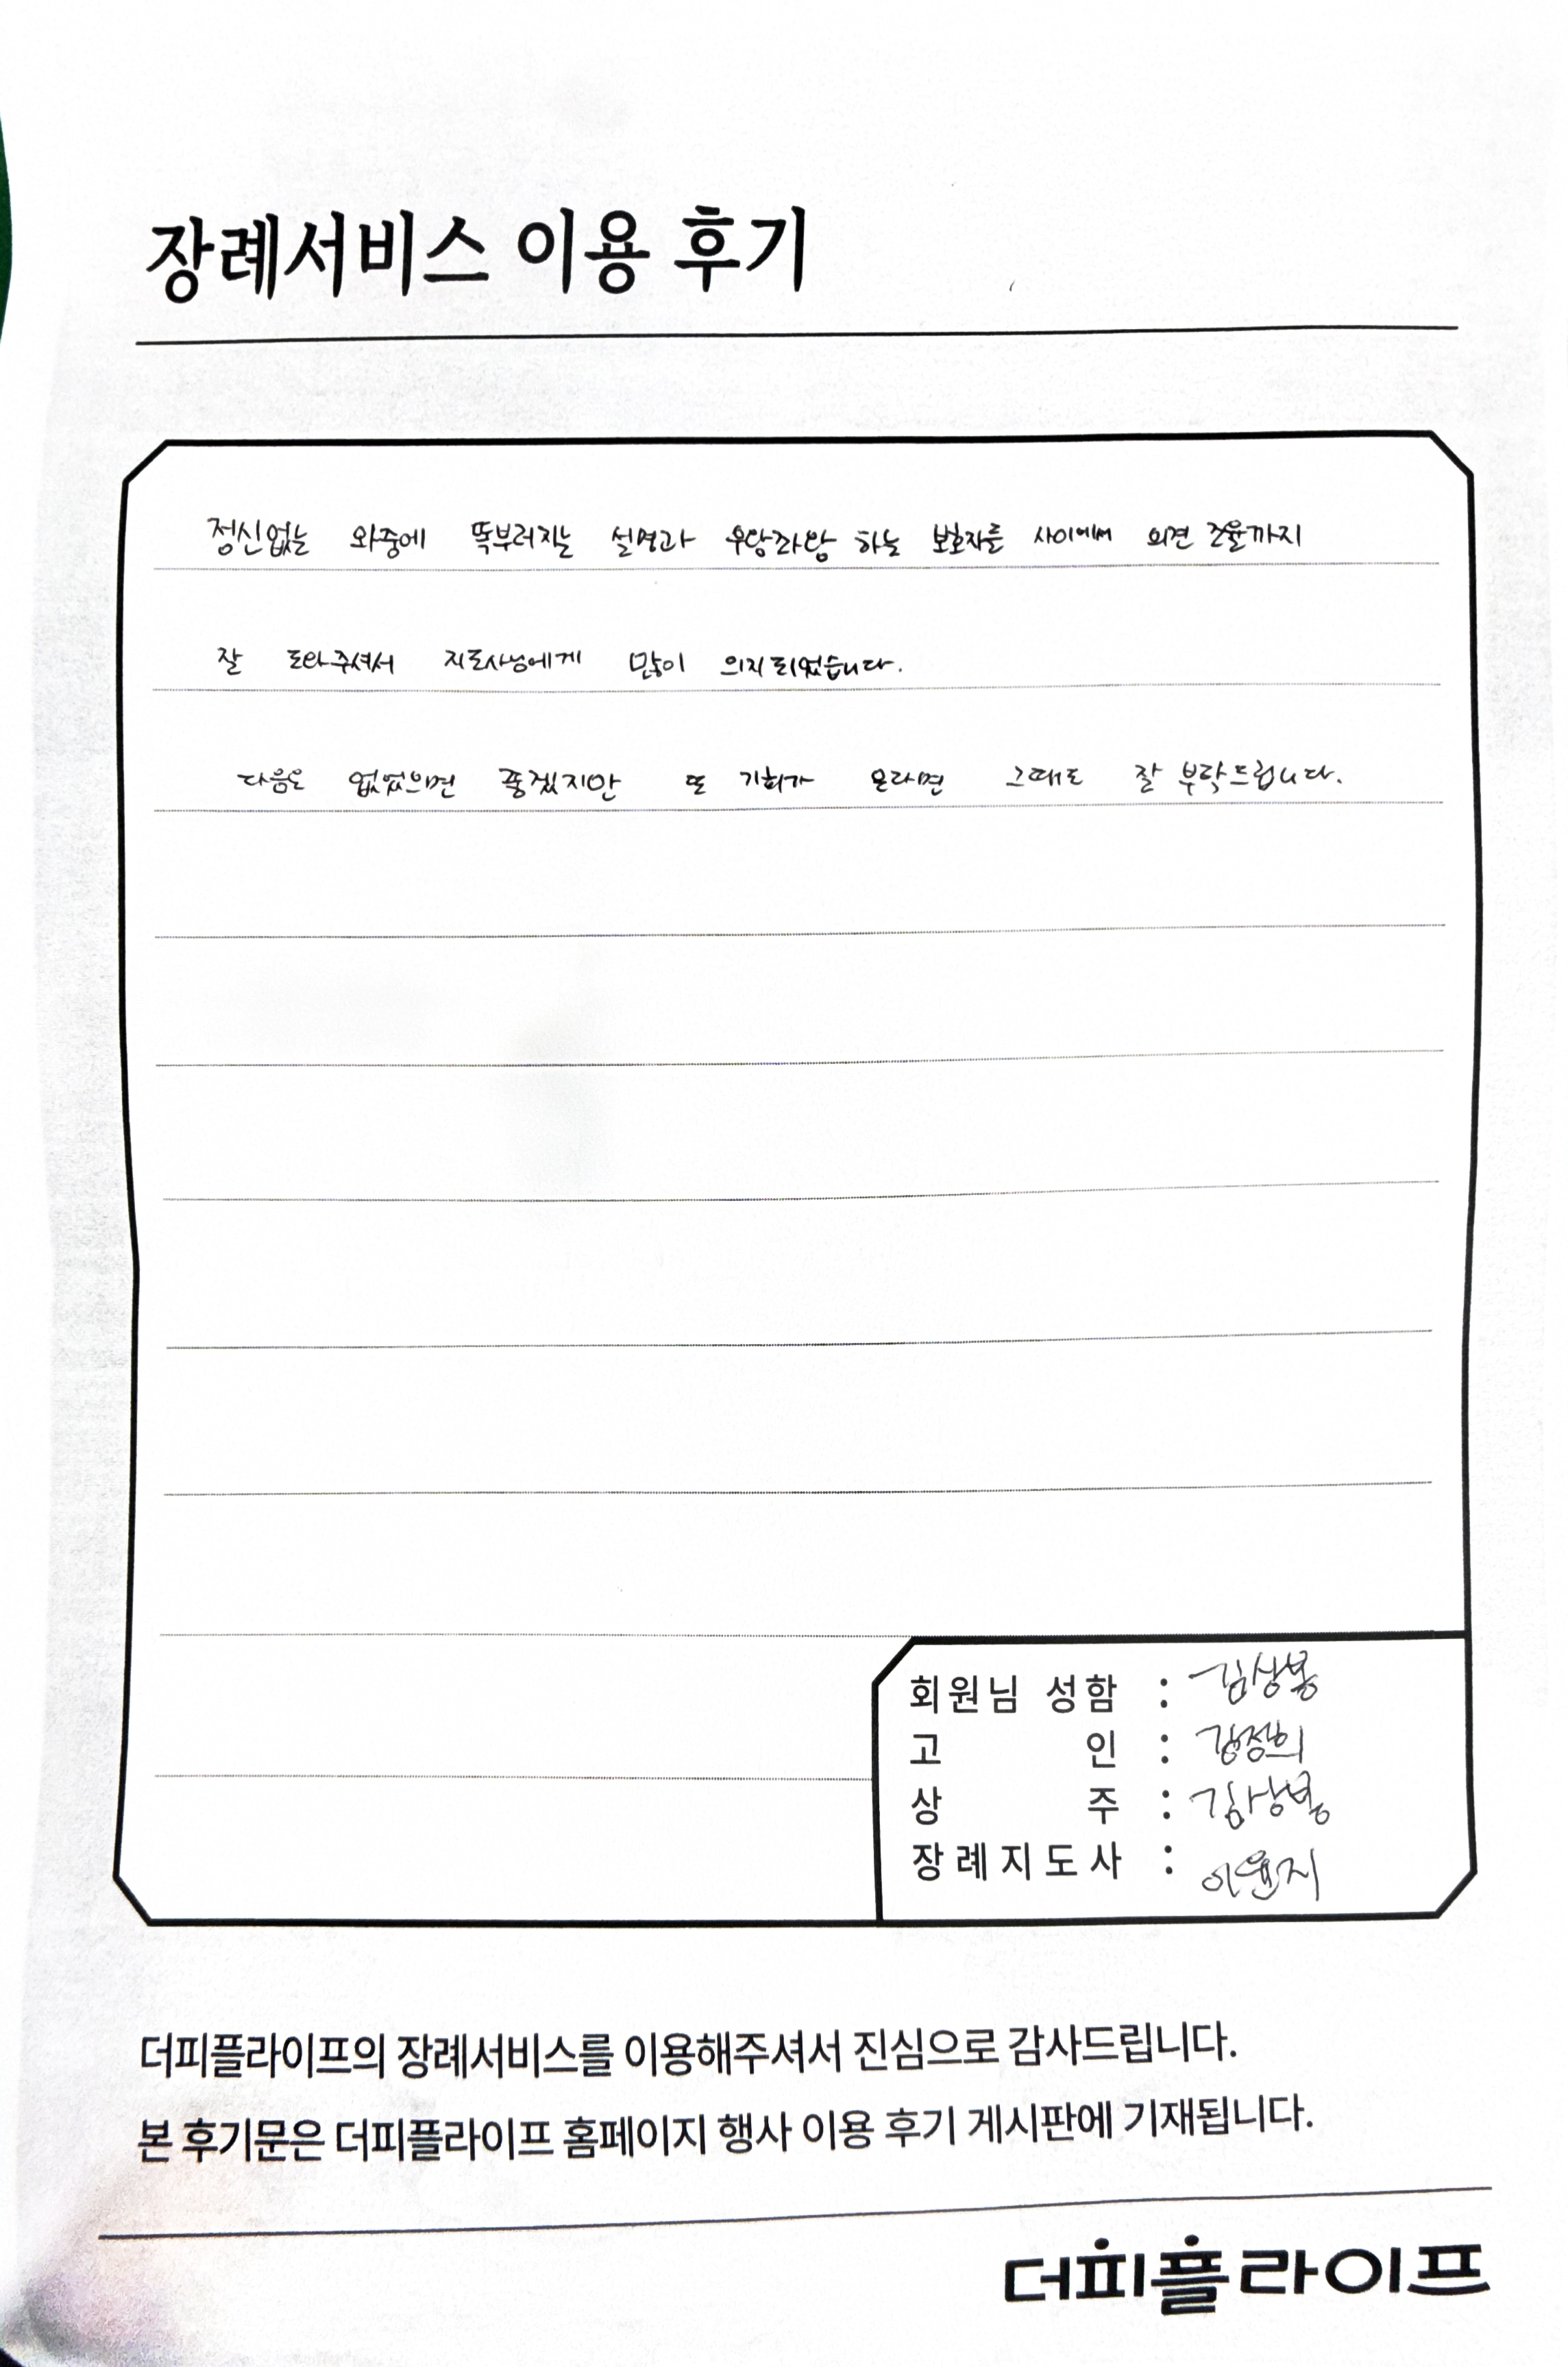 장례서비스 이용 후기
정신없는 와중에 똑부러지는 설명과 우왕좌왕 하는 보호자들 사이에서 의견 조율까지
잘 도와주셔서 지도사님에게 많이 의지되었습니다.
다음은 없었으면 좋겠지만 또 기회가 온다면 그때도 잘 부탁드립니다.
회원님 성함 : 김상봉
고 인 : 김정희
상 주 : 김상봉
장례지도사 : 이윤지
더피플라이프의 장례서비스를 이용해주셔서 진심으로 감사드립니다.
본 후기문은 더피플라이프 홈페이지 행사 이용 후기 게시판에 기재됩니다.
더피플라이프